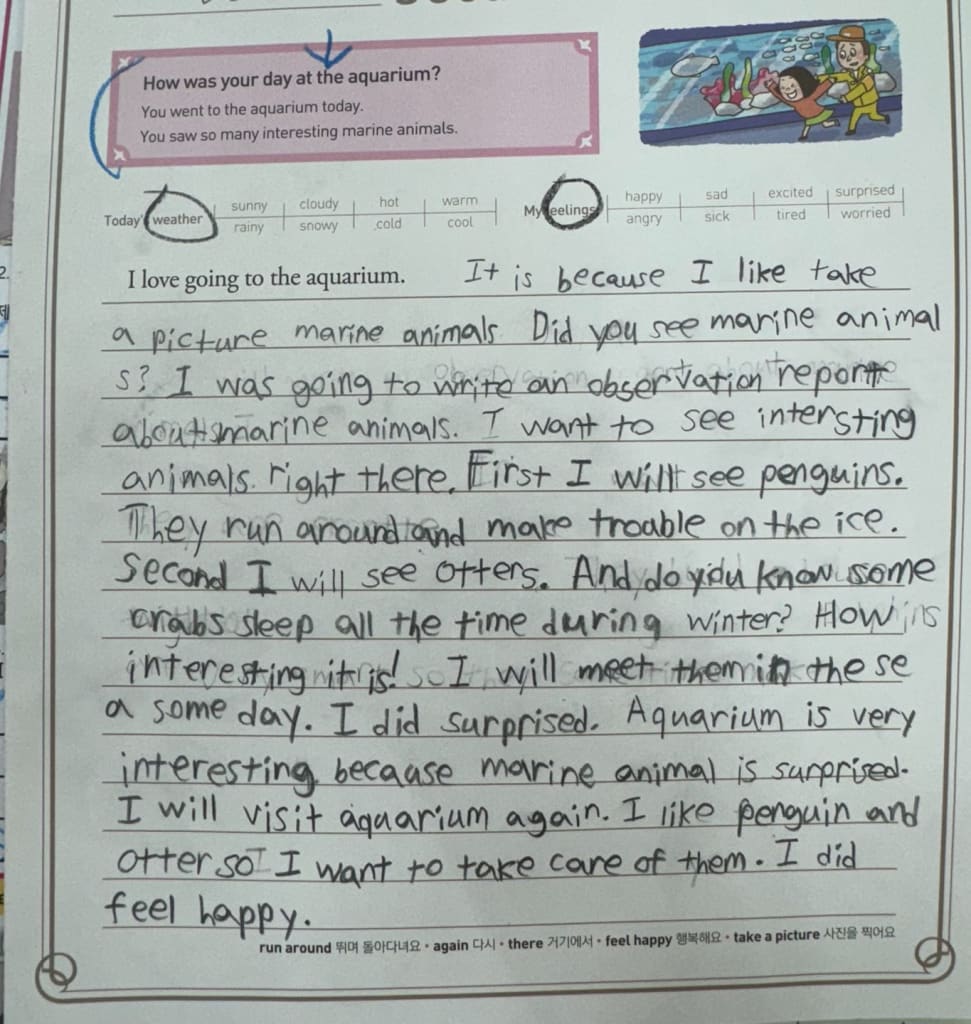 How was your day at the aquarium?
You went to the aquarium today.
You saw so many interesting marine animals.
Today's weather
sunny cloudy hot warm
rainy snowy cold cool
My feelings
happy sad excited surprised
angry sick tired worried
I love going to the aquarium. It is because I like take
a picture marine animals. Did you see marine animal
s? I was going to write an observation report
about marine animals. I want to see intersting
animals. right there. First I will see penguins.
They run around and make trouble on the ice.
Second I will see otters. And do you know some
crabs sleep all the time during winter? How
interesting it is! so I will meet them in the se
a some day. I did surprised. Aquarium is very
interesting because marine animal is surprised.
I will visit aquarium again. I like penguin and
otter so I want to take care of them. I did
feel happy.
run around 뛰며 돌아다녀요 • again 다시 • there 거기에서 • feel happy 행복해요 • take a picture 사진을 찍어요